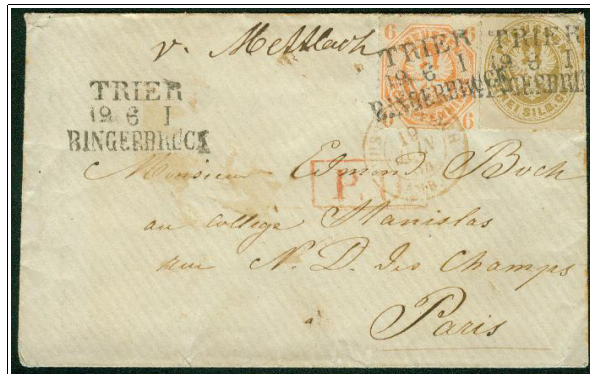 v. Mettlach
TRIER
19 6 I
BINGERBRÜCK
6 6
TRIER
19 6 I
BINGERBRÜCK
6
TRIER
19 6 I
SILB.
P.
Monsieur Edmond Boch
au Collége Stanislas
rue N. D. des Champs
à
Paris